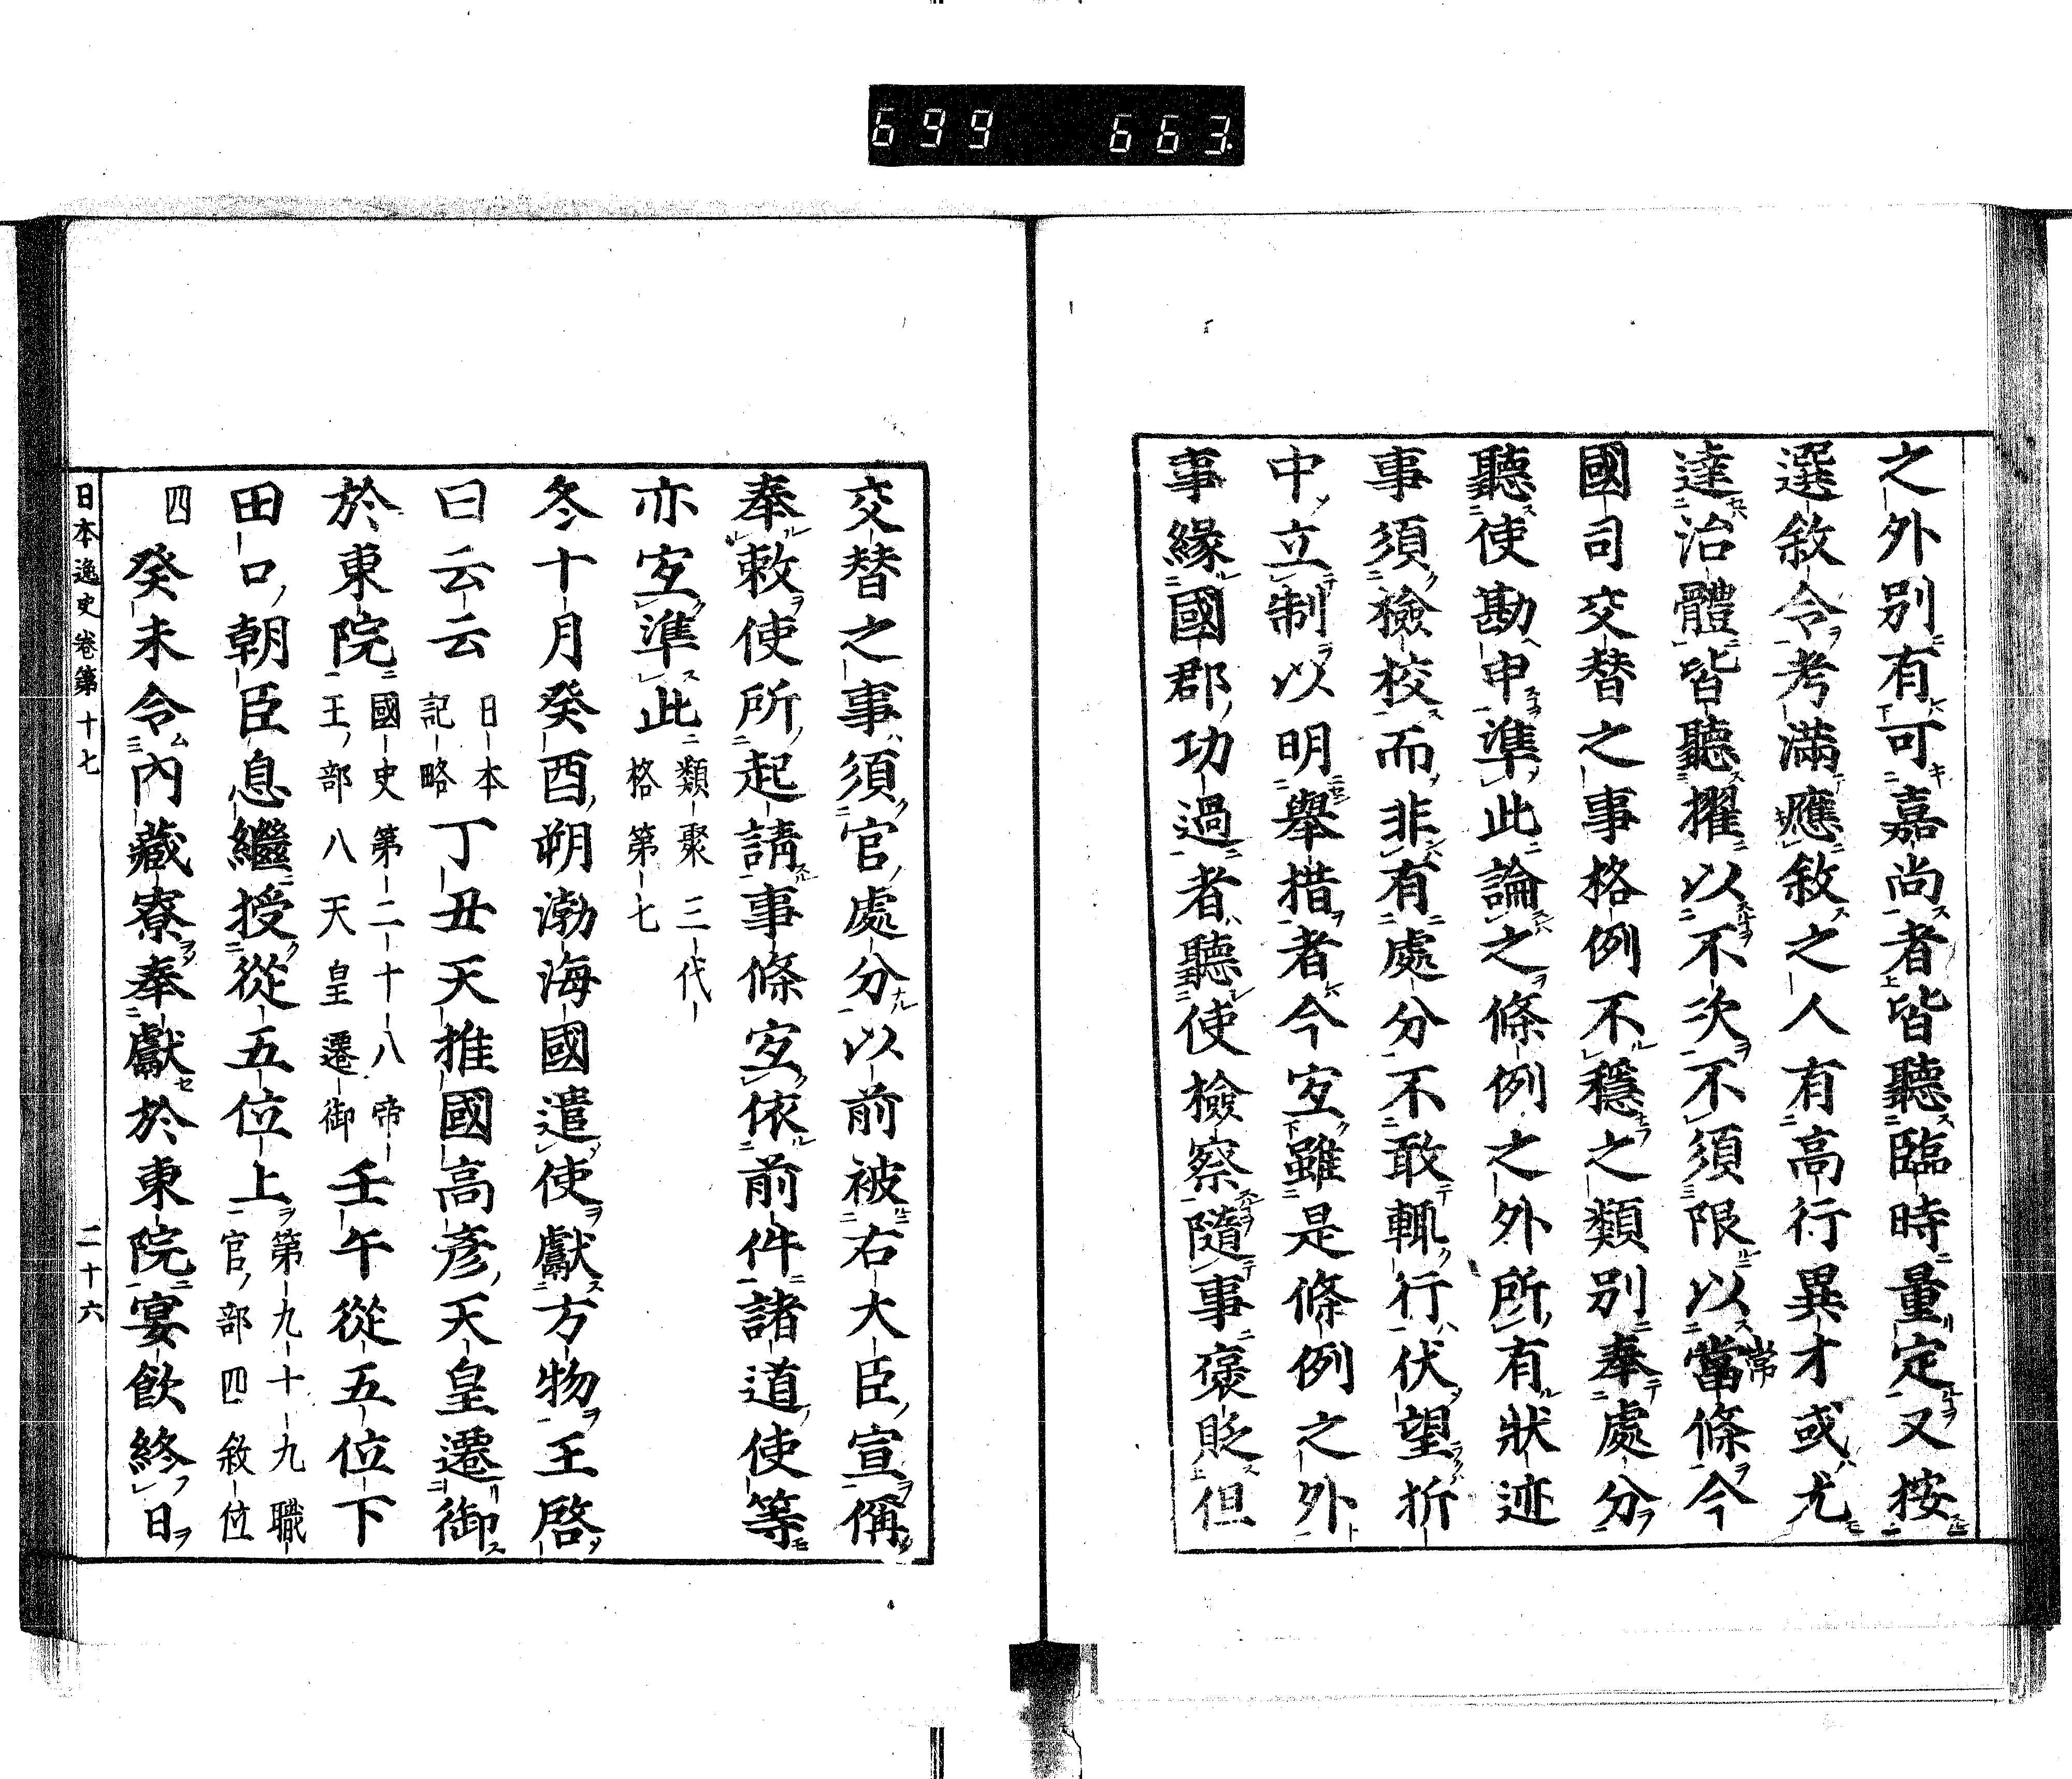 699 663
之外別有可嘉尚者皆聽臨時量定又按
選敘令考滿應敘之人有高行異才或尤
達治體皆聽擢以不次不須限以當條今
常
國司交替之事格例不穩之類別奉處分
聽使勘申準此論之條例之外所有狀迹
事須檢校而非有處分不敢輒行伏望折
中立制以明舉措者今宐雖是條例之外
事緣國郡功過者聽使檢察隨事褒貶但
交替之事須官處分以前被右大臣宣偁
奉敕使所起請事條宐依前件諸道使等
亦宐準此 類聚三代
格第七
冬十月癸酉朔渤海國遣使獻方物王啓
曰云云 日本
記略 丁丑天推國高彥天皇遷御
於東院 國史第二十八帝
王部八天皇遷御 壬午從五位下
田口朝臣息繼授從五位上 第九十九職
官部四敘位
四
癸未令內藏寮奉獻於東院宴飲終日
日本逸史卷第十七 二十六